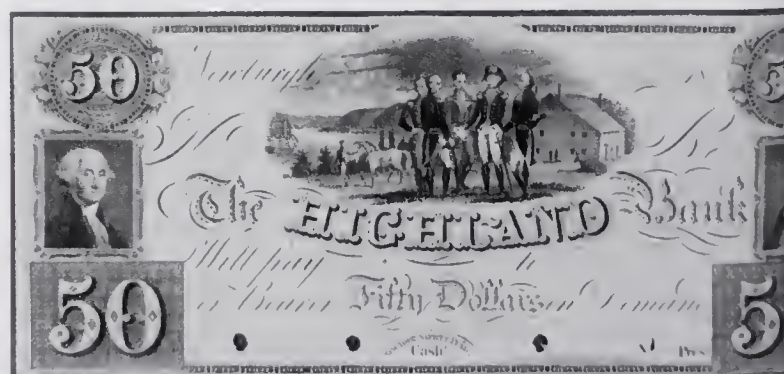 50
Newburgh
The HIGHLAND Bank
Will pay to
or Bearer Fifty Dollars on Demand
50 5
Cash' Pres